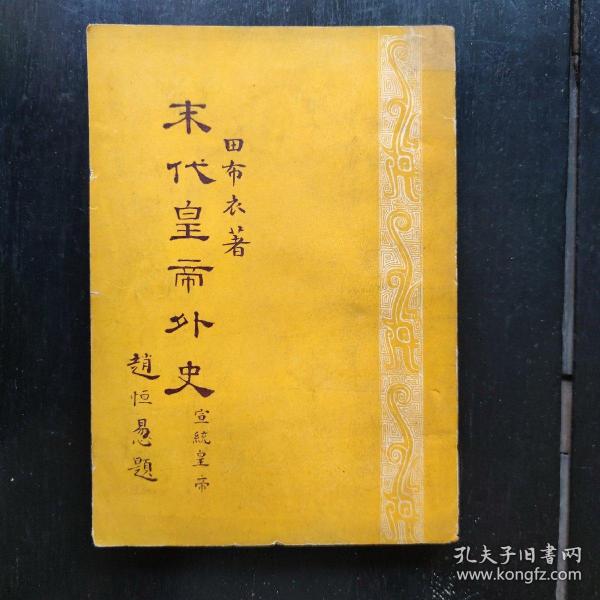 田布衣著
末代皇帝外史
宣統皇帝
趙恒惖題
孔夫子旧書网
www.kongfz.com